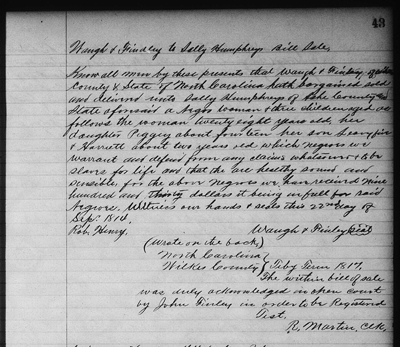 43
Waugh & Findley to Sally Humphreys Bill Sale
Know all men by these presents that Waugh & Finley of
County & State of North Carolina hath bargained sold
and delivered unto Sally Humphreys of Ashe County &
State aforesaid a Negro woman & three children aged as
follows the woman twenty eight years old, her
daughter Peggy about fourteen her son
& Harrett about two years old which negroes we
warrant and defend from any claims whatsoever & to be
slaves for life and that the are healthy sound and
sensible, for the above Negroes we have received nine
hundred and dollars it being in full for said
Negroes. Witness our hands & seals this 22nd day of
Sep. 1814.
Rob. Henry. Waugh & Finley Seal
(Wrote on the back)
North Carolina
Wilkes County { Feby Term 1817,
The within bill of sale
was duly acknowledged in open court
by John Finley in order to be Registered
Test.
R. Martin, Clk,